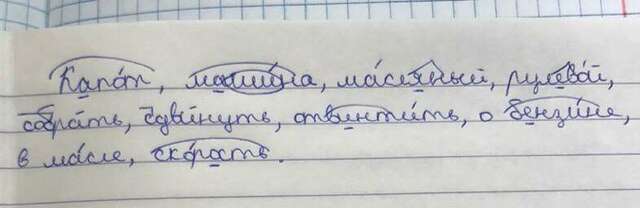 Капо́т, маши́на, ма́сляный, рулево́й,
собра́ть, сдви́нуть, отвинти́ть, о бензи́не,
в ма́сле, ско́рость.